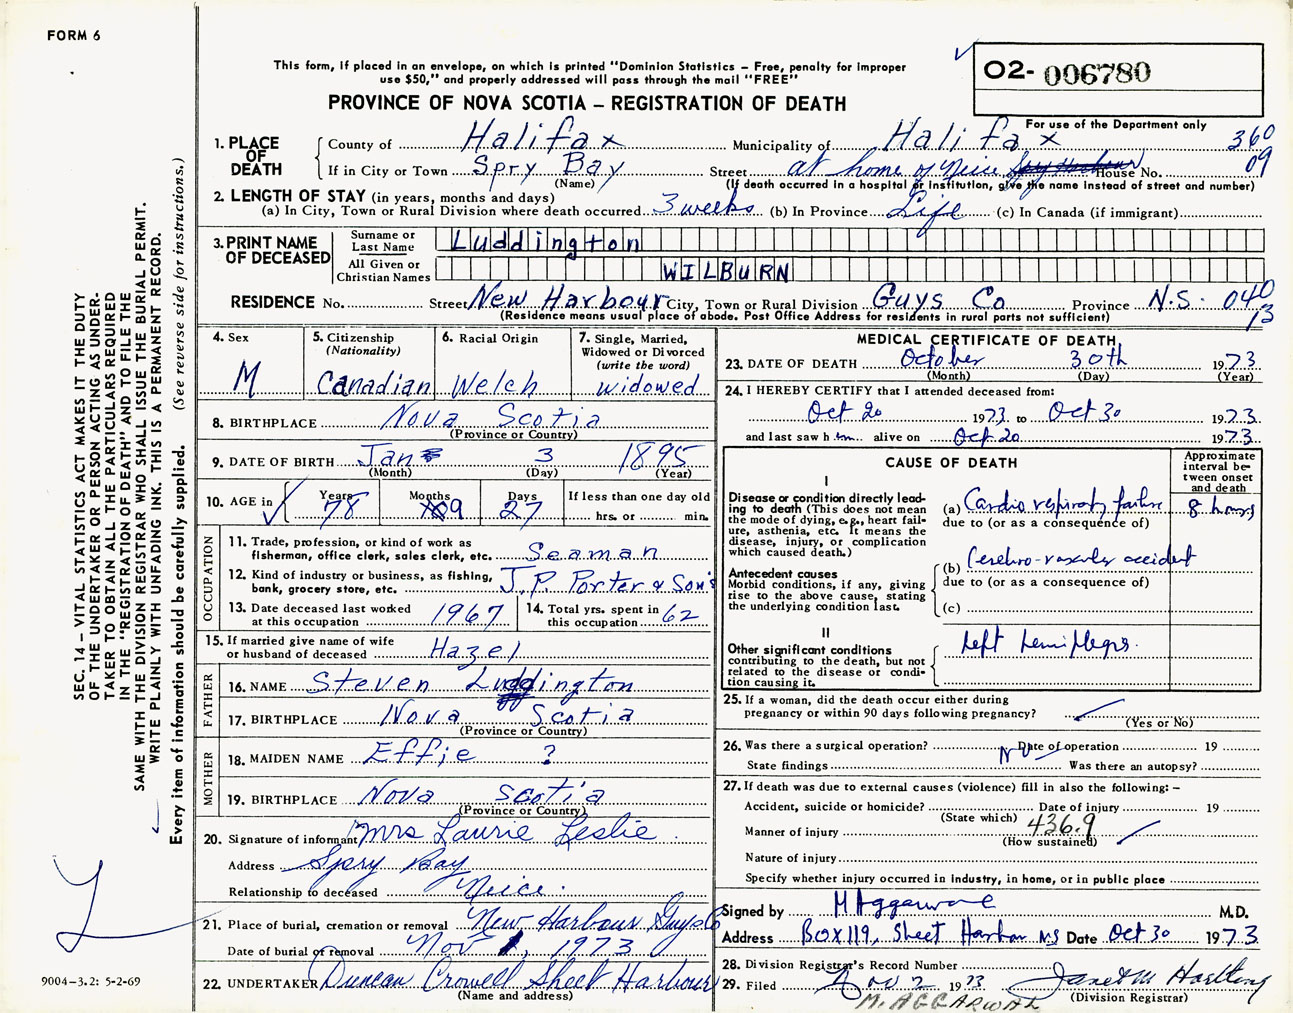 FORM 6
This form, if placed in an envelope, on which is printed "Dominion Statistics – Free, penalty for improper
use $50," and properly addressed will pass through the mail "FREE"
PROVINCE OF NOVA SCOTIA – REGISTRATION OF DEATH
O2- 006780
For use of the Department only
360
09
1. PLACE OF DEATH
County of Halifax Municipality of Halifax
If in City or Town Spry Bay Street at home of Neice House No.
(Name) (If death occurred in a hospital or institution, give the name instead of street and number)
2. LENGTH OF STAY (in years, months and days)
(a) In City, Town or Rural Division where death occurred 3 weeks (b) In Province Life (c) In Canada (if immigrant)
3. PRINT NAME OF DECEASED
Surname or Last Name Luddington
All Given or Christian Names WILBURN
RESIDENCE No. Street New Harbour City, Town or Rural Division Guys Co Province N.S. 040
13
(Residence means usual place of abode. Post Office Address for residents in rural parts not sufficient)
4. Sex
M
5. Citizenship
(Nationality)
Canadian
6. Racial Origin
Welch
7. Single, Married,
Widowed or Divorced
(write the word)
widowed
8. BIRTHPLACE Nova Scotia
(Province or Country)
9. DATE OF BIRTH Jan 3 1895
(Month) (Day) (Year)
10. AGE in Years 78 Months 9 Days 27 If less than one day old
hrs. or min.
OCCUPATION
11. Trade, profession, or kind of work as
fisherman, office clerk, sales clerk, etc. Seaman
12. Kind of industry or business, as fishing,
bank, grocery store, etc. J.P. Porter & Son's
13. Date deceased last worked
at this occupation 1967
14. Total yrs. spent in
this occupation 62
15. If married give name of wife
or husband of deceased Hazel
FATHER
16. NAME Steven Luddington
17. BIRTHPLACE Nova Scotia
(Province or Country)
MOTHER
18. MAIDEN NAME Effie ?
19. BIRTHPLACE Nova Scotia
(Province or Country)
20. Signature of informant Mrs Laurie Leslie
Address Spry Bay
Relationship to deceased Neice.
21. Place of burial, cremation or removal New Harbour Guys Co
Date of burial or removal Nov 1, 1973
22. UNDERTAKER Duncan Crowell Sheet Harbour
(Name and address)
MEDICAL CERTIFICATE OF DEATH
23. DATE OF DEATH October 30th 1973
(Month) (Day) (Year)
24. I HEREBY CERTIFY that I attended deceased from:
Oct 20 1973 to Oct 30 1973
and last saw him alive on Oct 20 1973
CAUSE OF DEATH
Approximate
interval be-
tween onset
and death
I
Disease or condition directly lead-
ing to death (This does not mean
the mode of dying, e.g., heart fail-
ure, asthenia, etc. It means the
disease, injury, or complication
which caused death.)
(a) Cardio respiratory failure 8 hours
due to (or as a consequence of)
Antecedent causes
Morbid conditions, if any, giving
rise to the above cause, stating
the underlying condition last.
(b) Cerebro-vascular accident
due to (or as a consequence of)
(c)
II
Other significant conditions
contributing to the death, but not
related to the disease or condi-
tion causing it.
Left hemiplegia.
25. If a woman, did the death occur either during
pregnancy or within 90 days following pregnancy?
(Yes or No)
26. Was there a surgical operation? No Date of operation 19
State findings Was there an autopsy?
27. If death was due to external causes (violence) fill in also the following: –
Accident, suicide or homicide? Date of injury 19
(State which)
Manner of injury 436.9
(How sustained)
Nature of injury
Specify whether injury occurred in industry, in home, or in public place
Signed by M Aggarwal M.D.
Address BOX 119, Sheet Harbour NS Date Oct 30 1973
28. Division Registrar's Record Number
29. Filed Nov 2 1973 Janet M
(Division Registrar)
M. AGGARWAL
SEC. 14 – VITAL STATISTICS ACT MAKES IT THE DUTY
OF THE UNDERTAKER OR PERSON ACTING AS UNDER-
TAKER TO OBTAIN ALL THE PARTICULARS REQUIRED
IN THE "REGISTRATION OF DEATH" AND TO FILE THE
SAME WITH THE DIVISION REGISTRAR WHO SHALL ISSUE THE BURIAL PERMIT.
WRITE PLAINLY WITH UNFADING INK. THIS IS A PERMANENT RECORD.
Every item of information should be carefully supplied. (See reverse side for instructions.)
9004–3.2: 5-2-69